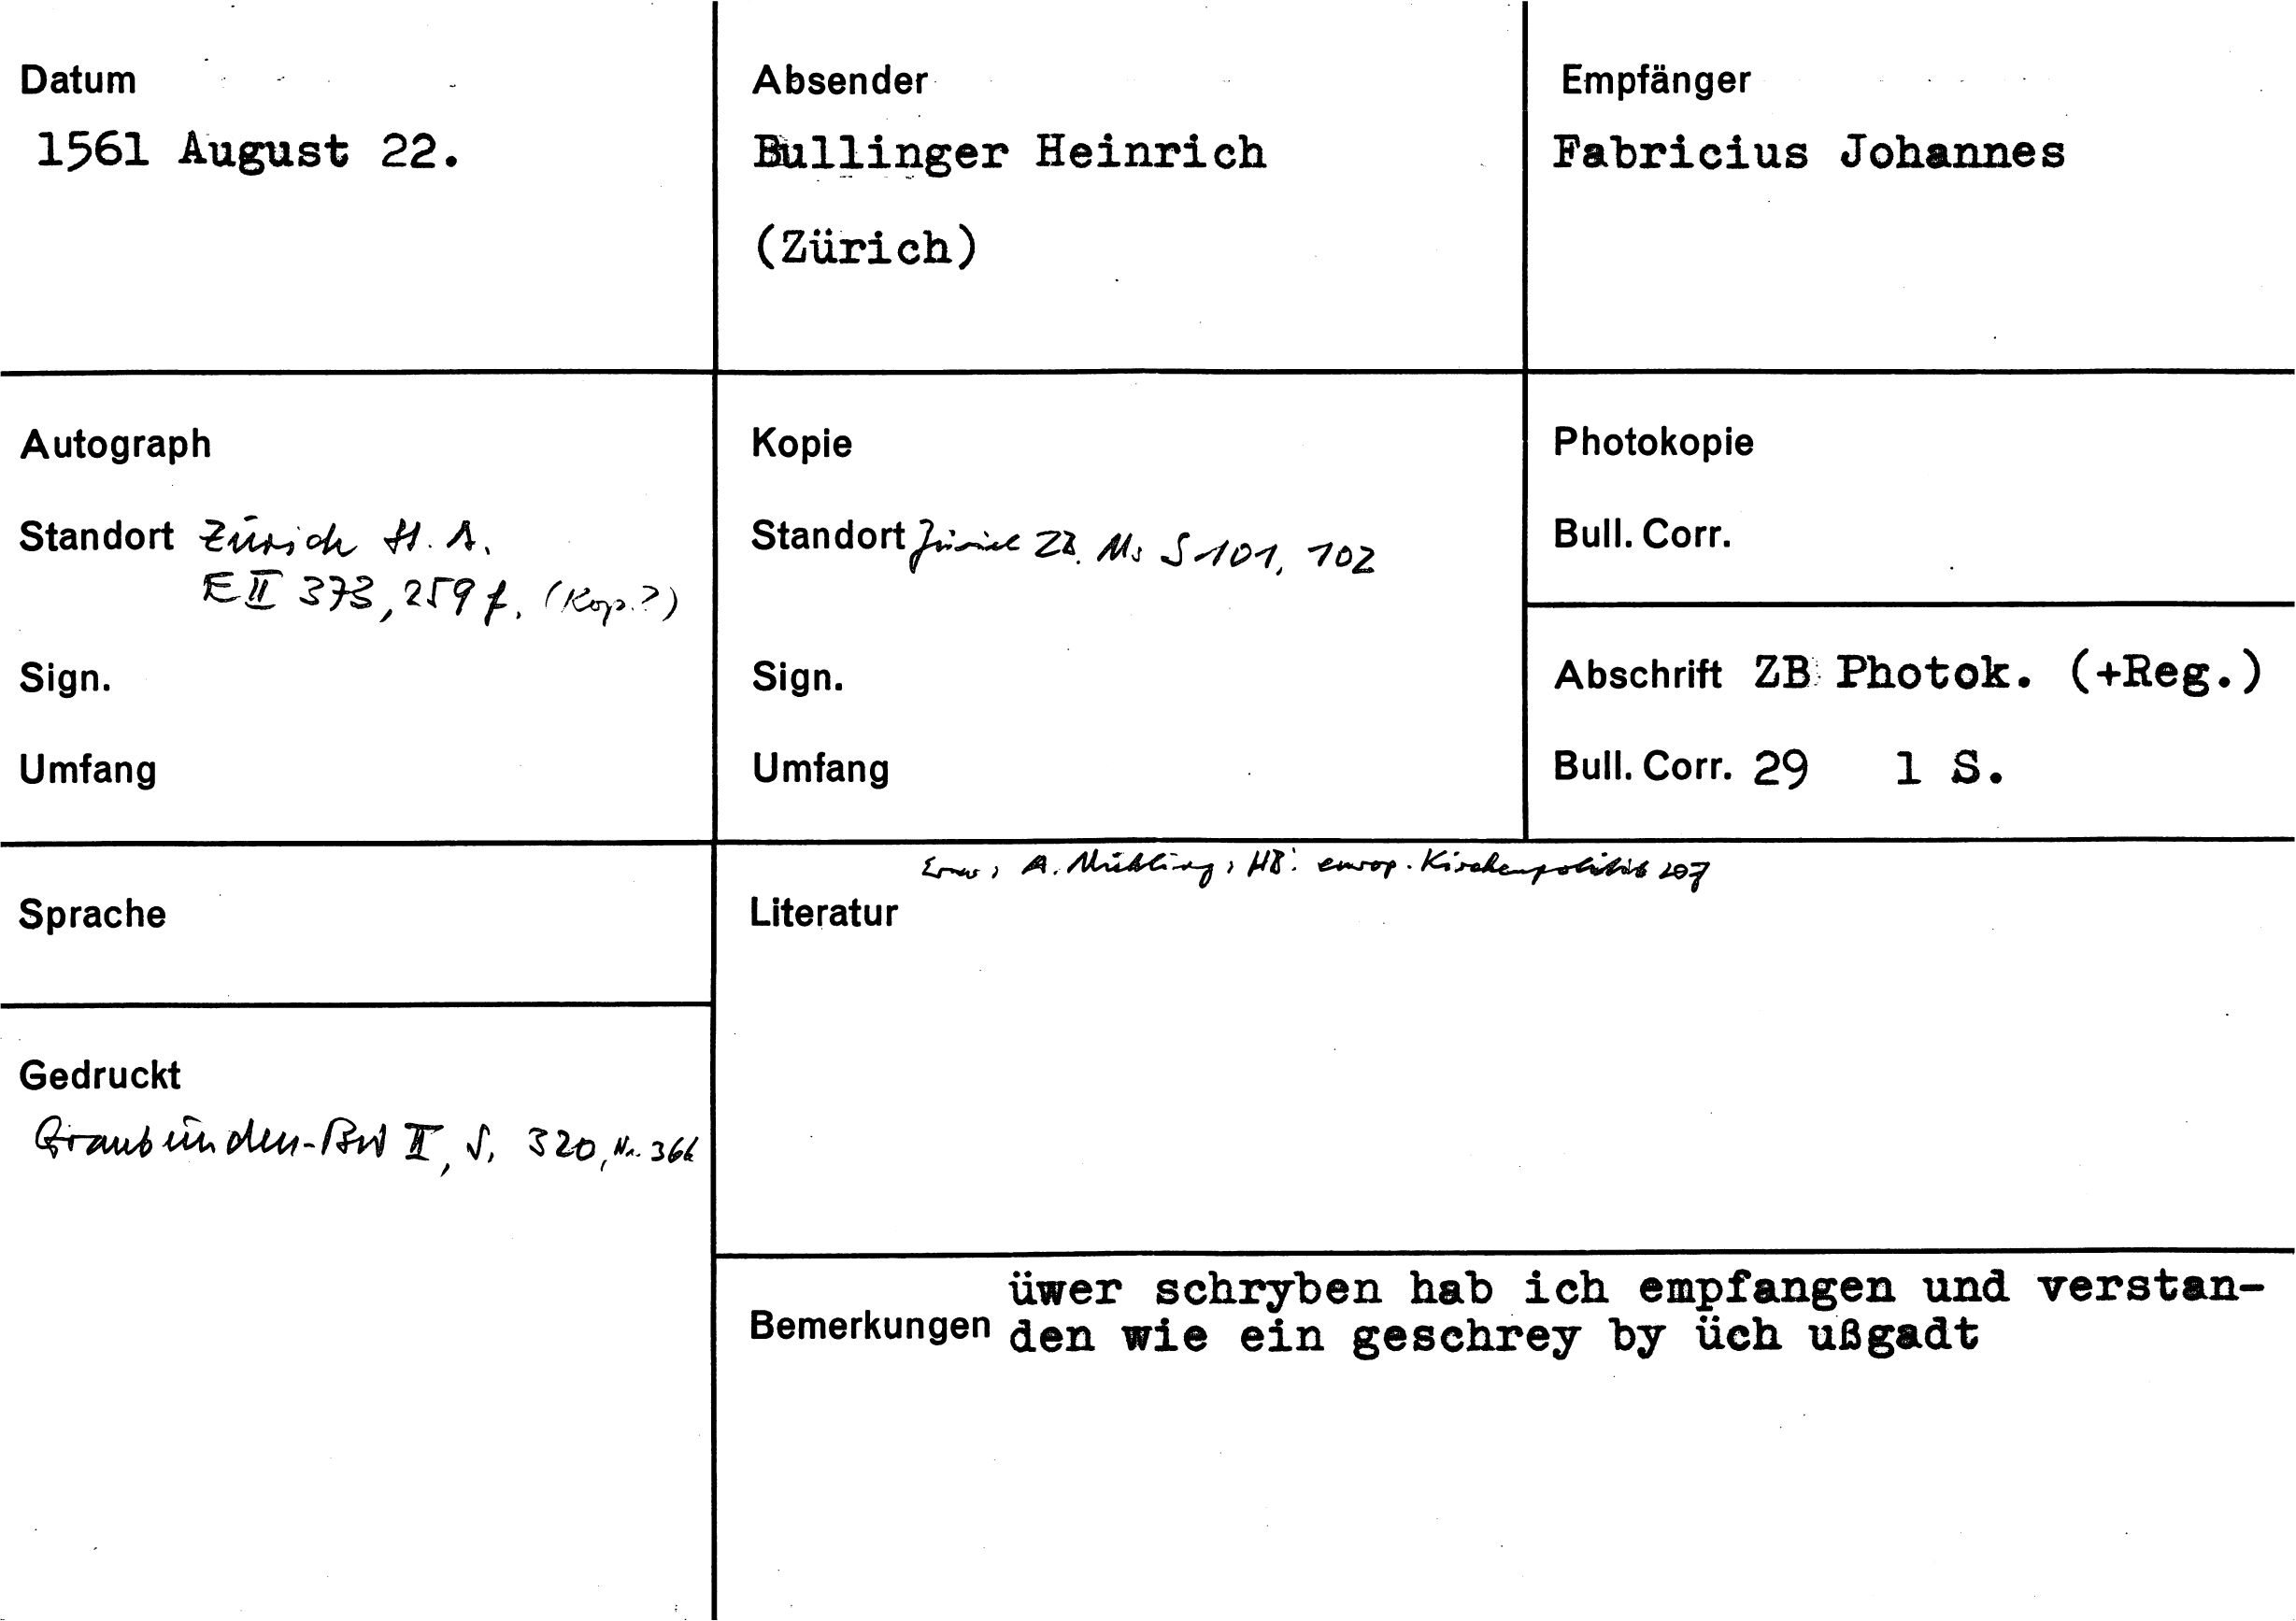 Datum
1561 August 22.
Absender
Bullinger Heinrich
(Zürich)
Empfänger
Fabricius Johannes
Autograph
Standort Zürich St. A.
E II 373, 259 f. (Kop.?)
Sign.
Umfang
Kopie
Standort Zürich ZB. Ms S 101, 102
Sign.
Umfang
Photokopie
Bull. Corr.
Abschrift ZB Photok. (+Reg.)
Bull. Corr. 29 1 S.
Sprache
Gedruckt
Graubünden-BW II, S. 320, Nr. 366
A. Mühling, HB: europ. Kirchenpolitik 207
Literatur
üwer schryben hab ich empfangen und verstan-
Bemerkungen den wie ein geschrey by üch ußgadt